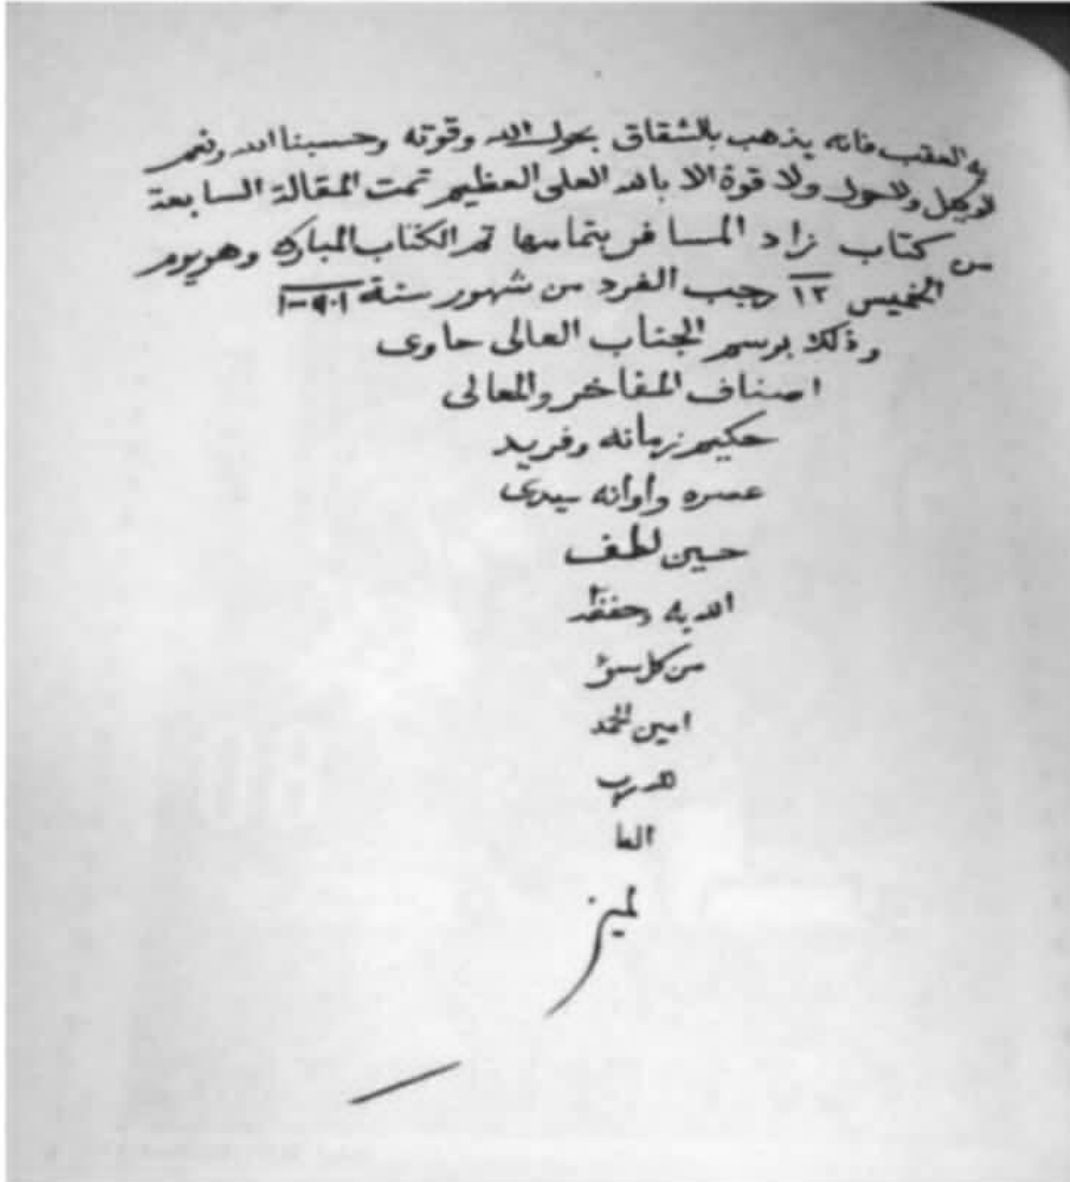 به العقب فانه يذهب بالشقاق بحول الله وقوته وحسبنا الله ونعم
الوكيل ولا حول ولا قوة الا بالله العلى العظيم تمت المقالة السابعة
من كتاب زاد المسافر بتمامها تم الكتاب المبارك وهو يوم
الخميس ١٢ رجب الفرد من شهور سنة
وذلك برسم الجناب العالى حاوى
اصناف المفاخر والمعالى
حكيم زمانه وفريد
عصره وأوانه سيدى
حسين لطف
الله به وحفظه
من كل سوء
امين الحمد
لله رب
العا
لمين